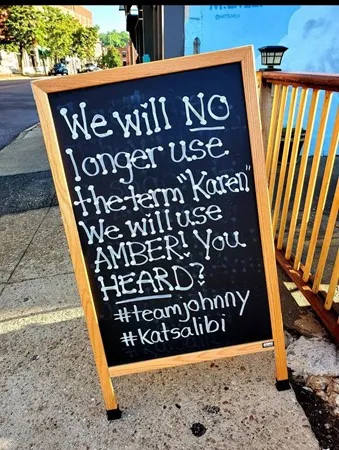 We will NO
longer use
the term "Karen"
We will use
AMBER! You
HEARD?
#teamjohnny
#Katsalibi